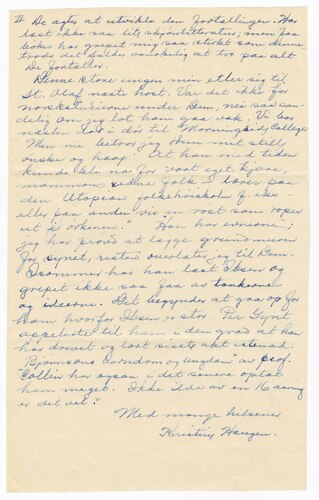 II De agter at utvikle den fortællingen. Har
læst ikke saa litt skjønliteratur, men faa
bøker har grepet mig saa sterkt som denne,
trods det falder vanskelig at tro paa alt
De fortæller.
Denne store ungen min etler sig til
St. Olaf næste høst. Var det ikke for
norskstudierne under Dem, nei saa san-
delig om jeg lot ham gaa væk. Vi bor
næsten dør i dør til Morningside College
Men nu betror jeg Dem mit still
ønske og haap! At han med tiden
kunde tale na for vort eget kjære,
mammons folk – være paa
den Utopian folkehøiskole f. eks
eller paa anden vis en røst som roper
ut i ørkenen." Han har evnerne;
jeg har prøvd at lægge grundmuren
for synet, resten overlates jeg til Dem.
I sommer har han læst Ibsen og
grepet ikke saa faa av tankerne
og ideerne. Det begynder at gaa op for
ham hvorfor Ibsen er stor. Per Gynt
appelerte til ham i den grad at han
har drevet og lært sidste akt utenad.
Bjørnsons barndom og ungdom" av prof.
Collin har ogsaa i det senere optat
ham meget. Ikke ilde av en 16 aaring
er det vel?
Med mange hilsener
Kristine Haugen.